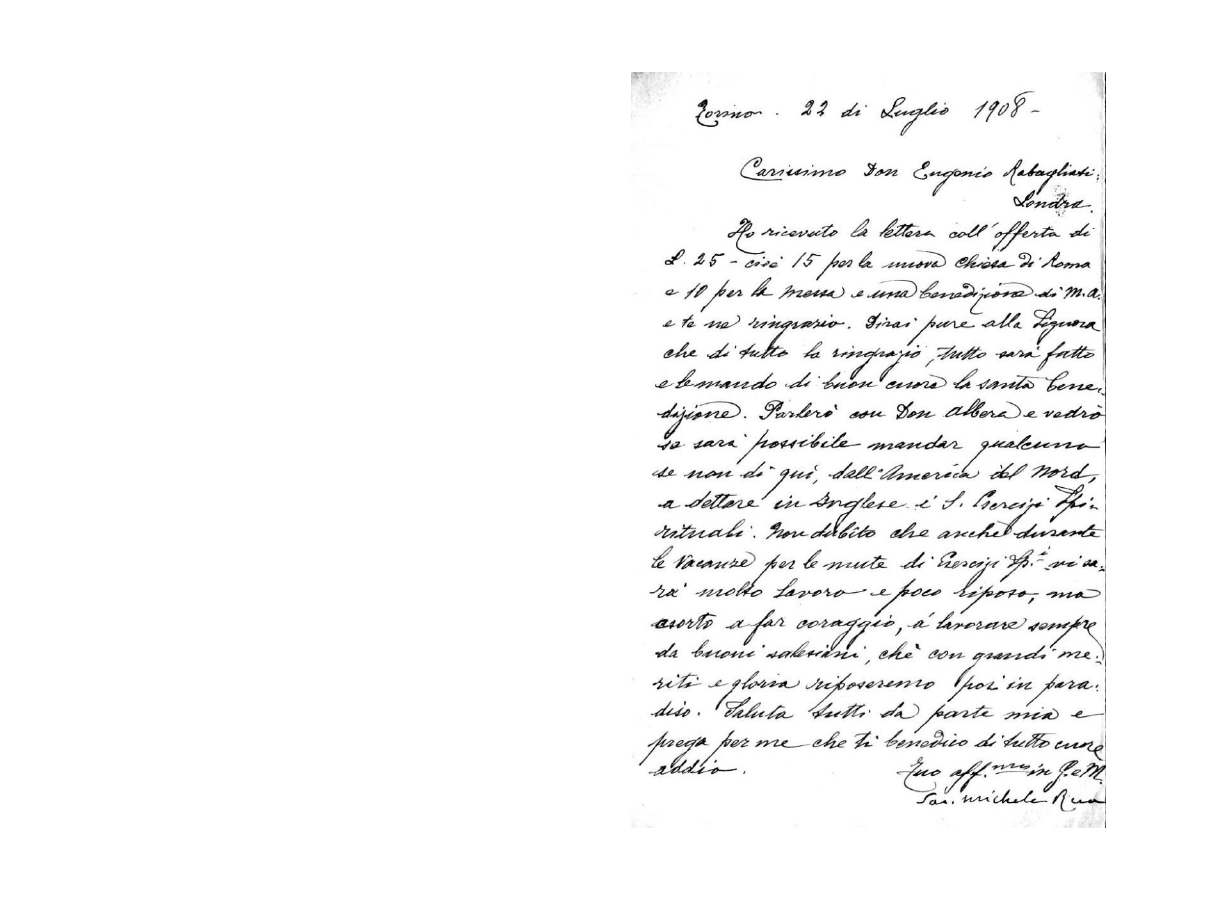 Torino. 22 di Luglio 1908-
Carissimo Don Eugenio Rabagliati.
Londra.
Ho ricevuto la lettera coll'offerta di
L. 25 - cioè 15 per la nuova chiesa di Roma
e 10 per la messa e una benedizione di M.A.
e te ne ringrazio. Dirai pure alla Signora
che di tutto la ringrazio, tutto sarà fatto
e le mando di buon cuore la santa bene-
dizione. Parlerò con Don Albera e vedrò
se sarà possibile mandar qualcuno
se non di qui, dall'America del Nord,
a dettare in Inglese i S. Esercizi Spi-
rituali. Non dubito che anche durante
le vacanze per le mute di Esercizi Sp.i vi sa-
rà molto lavoro e poco riposo, ma
esorto a far coraggio, á lavorare sempre
da buoni salesiani, chè con grandi me-
riti e gloria riposeremo poi in para-
diso. Saluta tutti da parte mia e
prega per me che ti benedico di tutto cuore
addio. Tuo aff.mo in G. e M.
Sac. Michele Rua